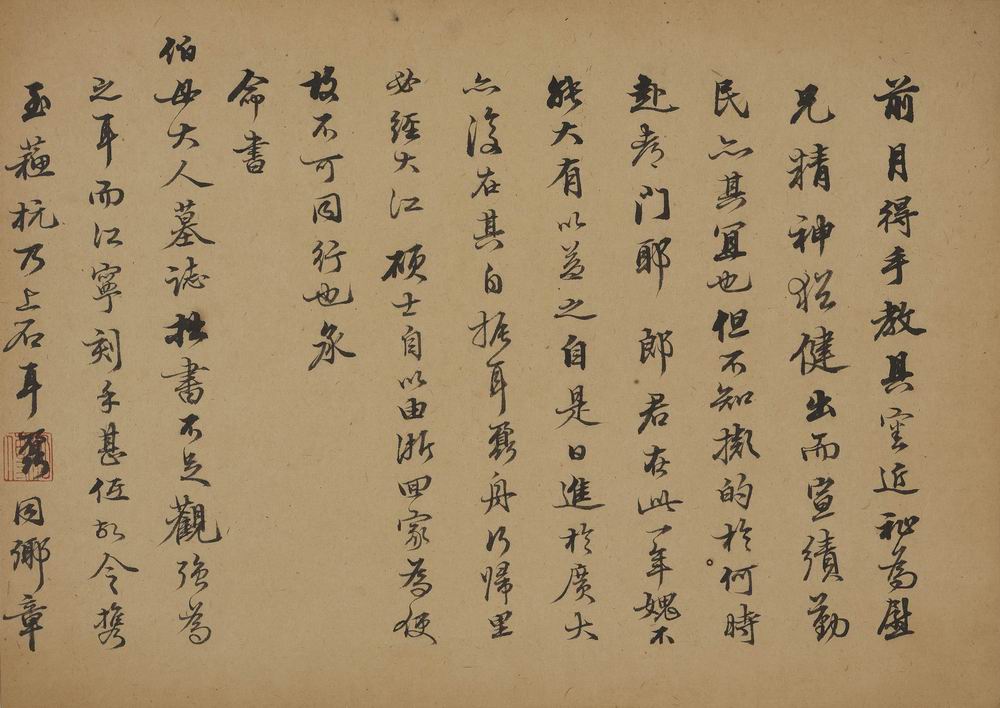 前月得手教具審近祉為慰
兄精神猶健出而宣績勤
民亦其宜也但不知擬的於何時
赴都門耶 郎君在此一年媿不
能大有以益之自是日進於廣大
亦須在其自振耳鼐舟行歸里
必經大江 碩士自以由浙回家為便
故不可同行也承
命書
伯母大人墓誌拙書不足觀強為
之耳而江寧刻手甚低故令攜
至蘇杭乃上石耳 鼐 同鄉章